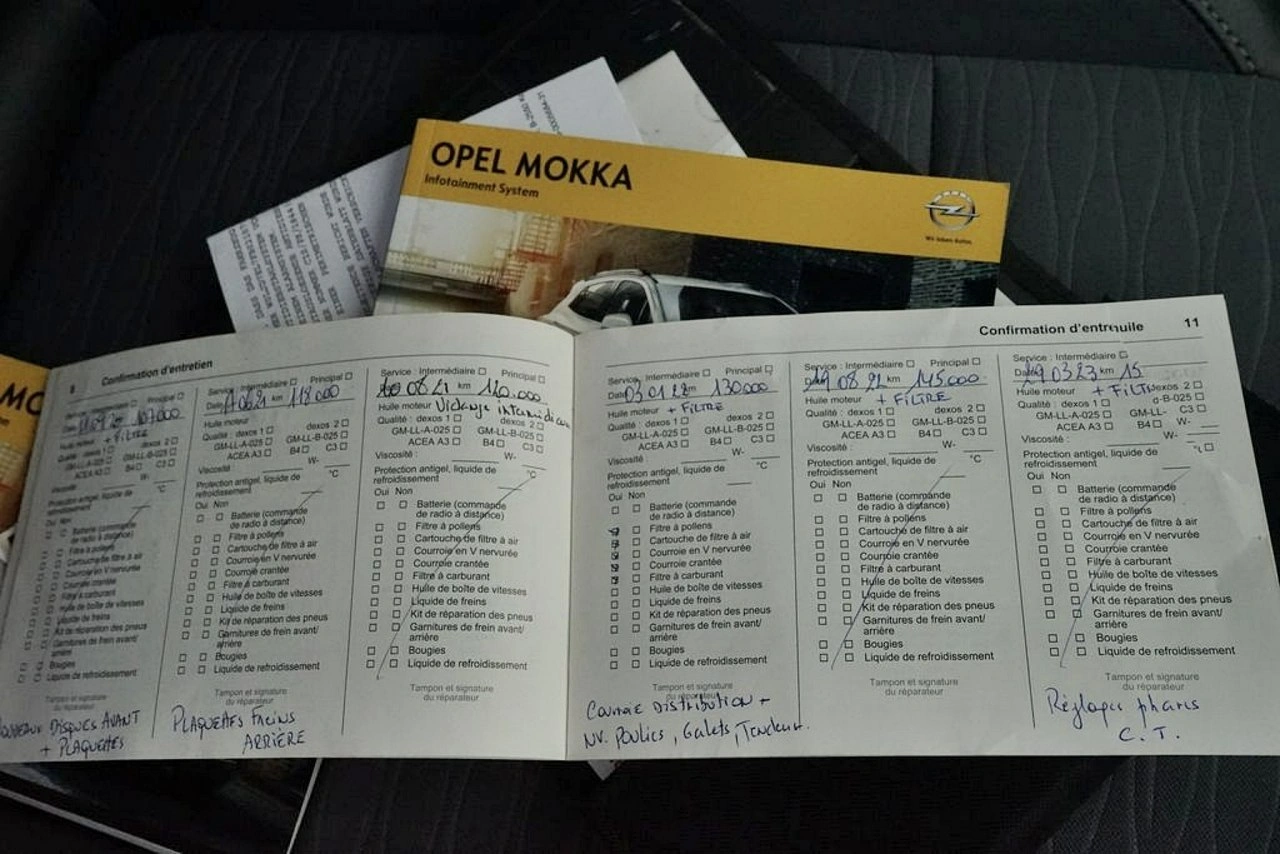 OPEL MOKKA
Infotainment System
Wir leben Autos.
Confirmation d'entretien
107000
+ FILTRE
Oui Non
Batterie (commande
de radio à distance)
Filtre à pollens
Cartouche de filtre à air
Courroie en V nervurée
Courroie crantée
Filtre à carburant
Huile de boîte de vitesses
Liquide de freins
Kit de réparation des pneus
Garnitures de frein avant/
arrière
Bougies
Liquide de refroidissement
Tampon et signature
du réparateur
DISQUES AVANT
+ PLAQUETTES
Service : Intermédiaire Principal
Date km 118000
Huile moteur
Qualité : dexos 1 dexos 2
GM-LL-A-025 GM-LL-B-025
ACEA A3 B4 C3
Viscosité W-
Protection antigel, liquide de
refroidissement °C
Oui Non
Batterie (commande
de radio à distance)
Filtre à pollens
Cartouche de filtre à air
Courroie en V nervurée
Courroie crantée
Filtre à carburant
Huile de boîte de vitesses
Liquide de freins
Kit de réparation des pneus
Garnitures de frein avant/
arrière
Bougies
Liquide de refroidissement
Tampon et signature
du réparateur
PLAQUETTES FREINS
ARRIÈRE
Service : Intermédiaire Principal
08 21 km 120.000
Huile moteur Vidange intermédiaire
Qualité : dexos 1 dexos 2
GM-LL-A-025 GM-LL-B-025
ACEA A3 B4 C3
Viscosité : W-
Protection antigel, liquide de
refroidissement °C
Oui Non
Batterie (commande
de radio à distance)
Filtre à pollens
Cartouche de filtre à air
Courroie en V nervurée
Courroie crantée
Filtre à carburant
Huile de boîte de vitesses
Liquide de freins
Kit de réparation des pneus
Garnitures de frein avant/
arrière
Bougies
Liquide de refroidissement
Tampon et signature
du réparateur
Confirmation d'entretien 11
Service : Intermédiaire Principal
Date 03 01 22 km 130000
Huile moteur + FILTRE
Qualité : dexos 1 dexos 2
GM-LL-A-025 GM-LL-B-025
ACEA A3 B4 C3
Viscosité : W-
Protection antigel, liquide de
refroidissement °C
Oui Non
Batterie (commande
de radio à distance)
Filtre à pollens
Cartouche de filtre à air
Courroie en V nervurée
Courroie crantée
Filtre à carburant
Huile de boîte de vitesses
Liquide de freins
Kit de réparation des pneus
Garnitures de frein avant/
arrière
Bougies
Liquide de refroidissement
Tampon et signature
du réparateur
COURROIE DISTRIBUTION +
NV. Poulies, Galets, Tendeur.
Service : Intermédiaire Principal
08 km 145000
Huile moteur + FILTRE
Qualité : dexos 1 dexos 2
GM-LL-A-025 GM-LL-B-025
ACEA A3 B4 C3
Viscosité : W-
Protection antigel, liquide de
refroidissement °C
Oui Non
Batterie (commande
de radio à distance)
Filtre à pollens
Cartouche de filtre à air
Courroie en V nervurée
Courroie crantée
Filtre à carburant
Huile de boîte de vitesses
Liquide de freins
Kit de réparation des pneus
Garnitures de frein avant/
arrière
Bougies
Liquide de refroidissement
Tampon et signature
du réparateur
Service : Intermédiaire
03 23 km 15
Huile moteur + FILT
Qualité : dexos 1 dexos 2
GM-LL-A-025 GM-LL-
ACEA A3 B4 C3
Viscosité : W-
Protection antigel, liquide de
refroidissement
Oui Non
Batterie (commande
de radio à distance)
Filtre à pollens
Cartouche de filtre à air
Courroie en V nervurée
Courroie crantée
Filtre à carburant
Huile de boîte de vitesses
Liquide de freins
Kit de réparation des pneus
Garnitures de frein avant/
arrière
Bougies
Liquide de refroidissement
Tampon et signature
du réparateur
Réglages phares
C.T.